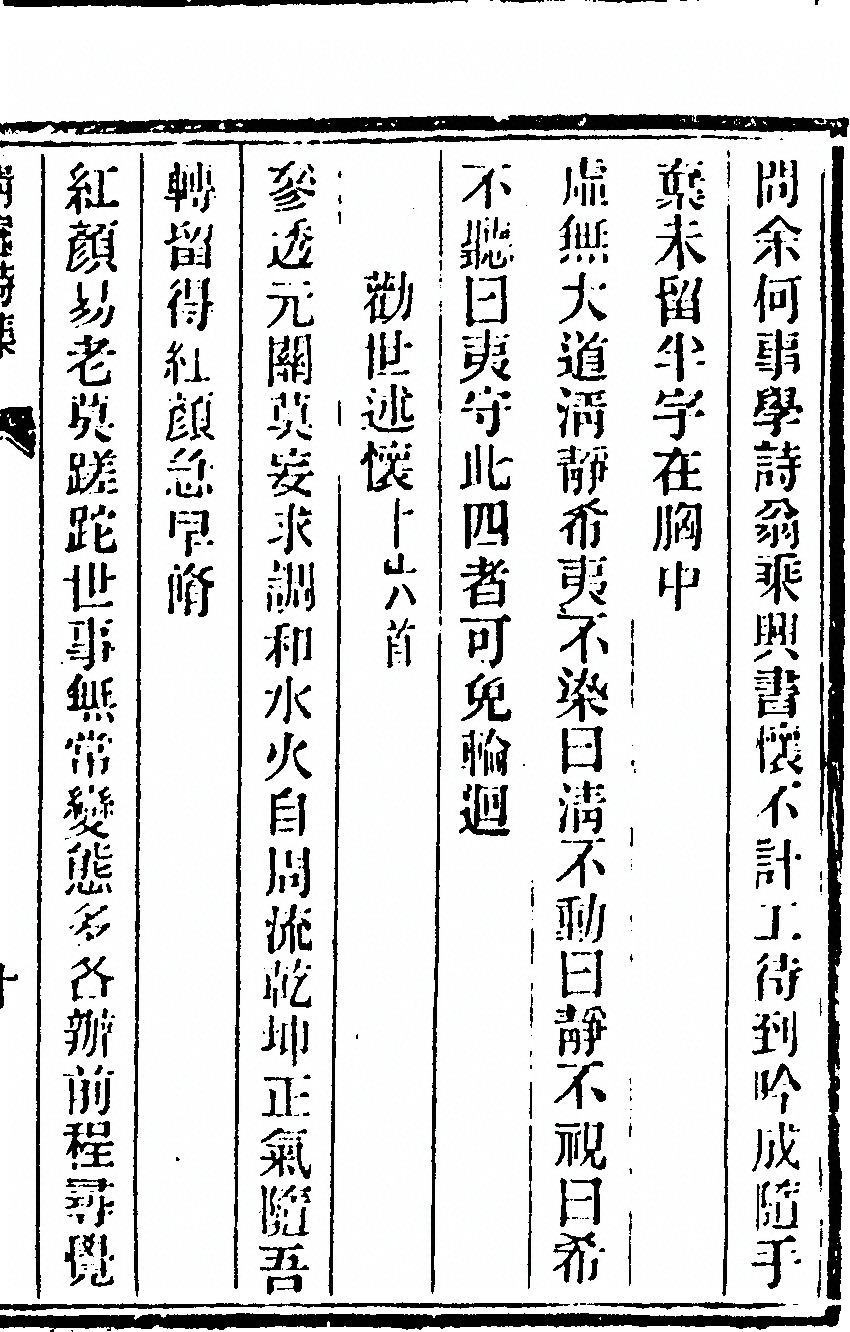 問余何事學詩翁乘興書懷不計工待到吟成隨手
棄未留半字在胸中
虛無大道清靜希夷不染曰清不動曰靜不視曰希
不聽曰夷守此四者可免輪迴
勸世述懷十六首
參透元關莫妄求調和水火自周流乾坤正氣隨吾
轉留得紅顏急早脩
紅顏易老莫蹉跎世事無常變態多各辦前程尋覺
十